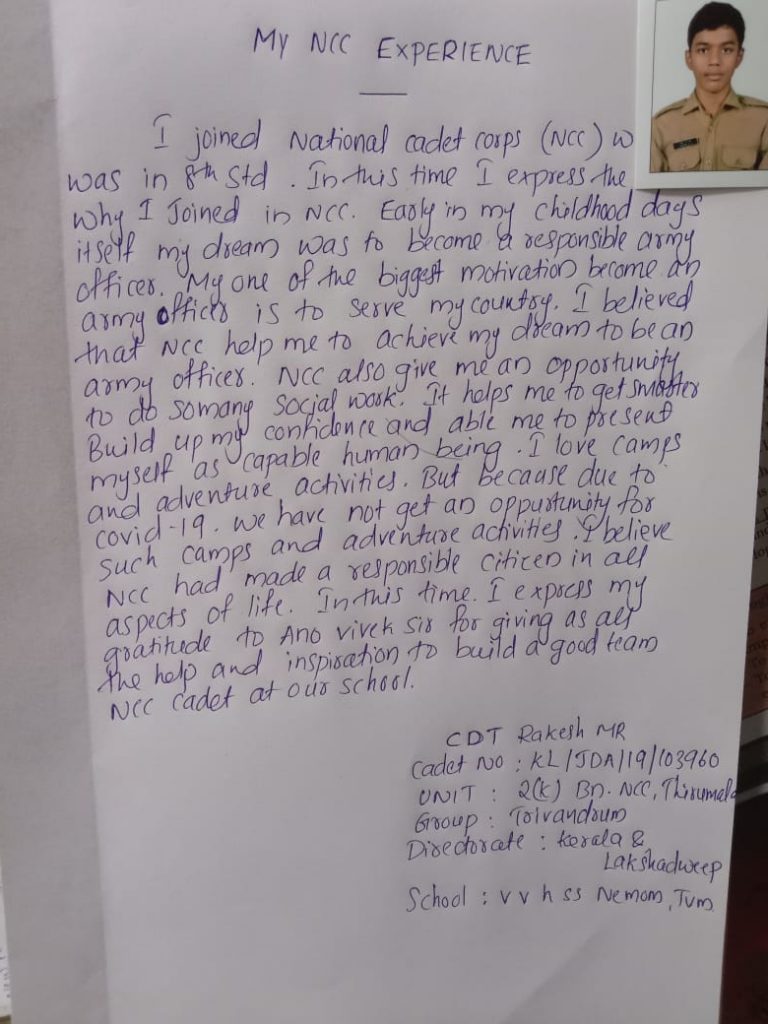 MY NCC EXPERIENCE
I joined National cadet corps (NCC) w
was in 8th Std . In this time I express the
why I Joined in NCC. Early in my childhood days
itself my dream was to become a responsible army
officer. My one of the biggest motivation become an
army officer is to serve my country. I believed
that NCC help me to achieve my dream to be an
army officer. NCC also give me an opportunity
to do somany social work. It helps me to get smarter
Build up my confidence and able me to present
myself as capable human being . I love camps
and adventure activities. But because due to
covid-19. we have not get an oppurtunity for
such camps and adventure activities . I believe
NCC had made a responsible citicen in all
aspects of life. In this time. I express my
gratitude to Ano vivek sir for giving as all
the help and inspiration to build a good team
NCC cadet at our school.
CDT Rakesh MR
Cadet No : KL/JDA/19/103960
UNIT : 2(K) Bn. NCC, Thirumala
Group : Trivandrum
Directorate : Kerala &
Lakshadweep
School : v v h ss Nemom, Tvm